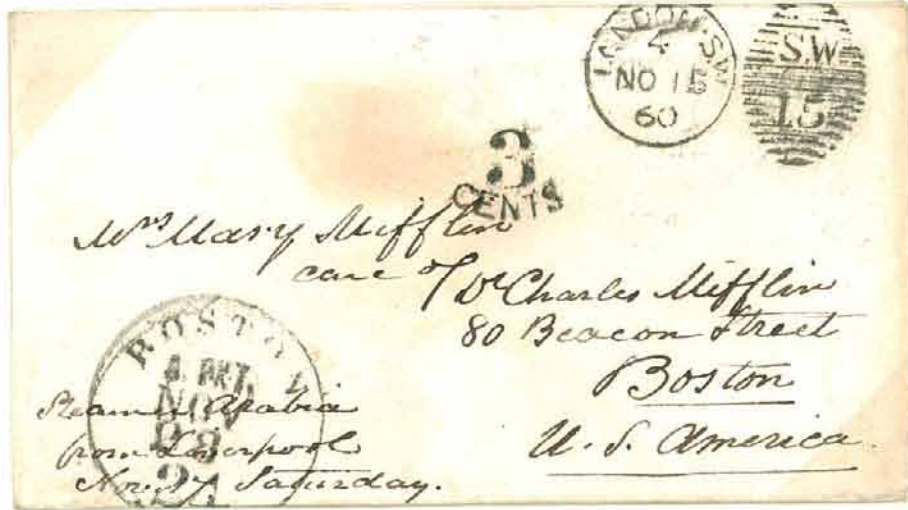 LONDON·S.W
4
NO 15
60
S.W
15
3
CENTS
Mrs Mary Mifflin
care of Dr Charles Mifflin
80 Beacon Street
Boston
U. S. America
BOSTON
PKT.
NOV
24
Steamer Arabia
from Liverpool
Nov. 17 Saturday.